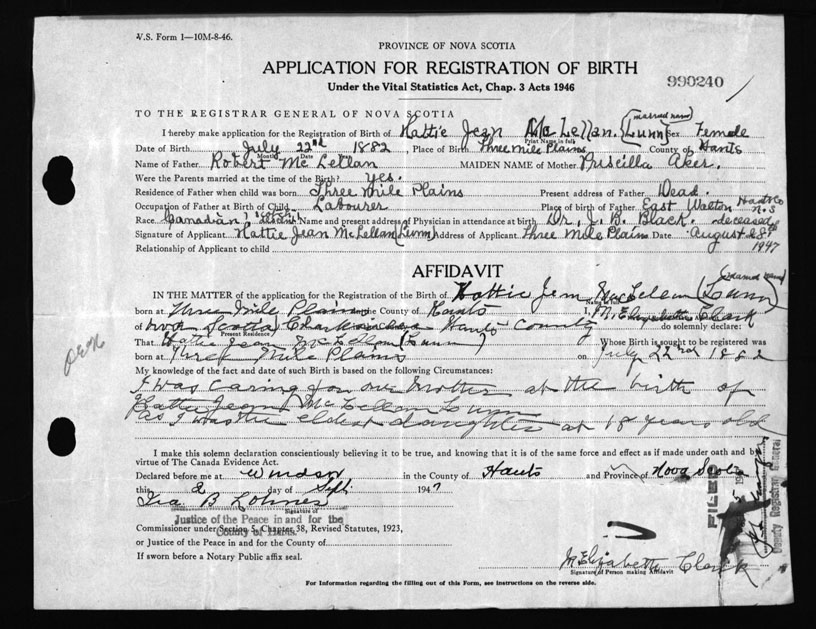 V.S. Form 1—10M-8-46.
PROVINCE OF NOVA SCOTIA
APPLICATION FOR REGISTRATION OF BIRTH
990240
Under the Vital Statistics Act, Chap. 3 Acts 1946
TO THE REGISTRAR GENERAL OF NOVA SCOTIA
(married name)
I hereby make application for the Registration of Birth of Hattie Jean McLellan. (Lunn) Sex Female
Print Name in full
Date of Birth July 22nd 1882, Place of Birth Three Mile Plains County of Hants
Month Date
Name of Father Robert McLellan MAIDEN NAME of Mother Priscilla Aker.
Were the Parents married at the time of the Birth? Yes.
Residence of Father when child was born Three Mile Plains Present address of Father Dead.
Occupation of Father at Birth of Child Labourer Place of birth of Father East Walton Hants Co N.S
Race Canadian, Name and present address of Physician in attendance at birth Dr. J. B. Black. deceased
Signature of Applicant Hattie Jean McLellan (Lunn) Address of Applicant Three Mile Plains Date August 28th 1947
Relationship of Applicant to child
AFFIDAVIT
IN THE MATTER of the application for the Registration of the Birth of Hattie Jean McLellan (Lunn)
born at Three Mile Plains in the County of Hants I, M. Elizabeth Clark
of Nova Scotia Hants County do solemnly declare:
Present Residence
That Hattie Jean McLellan (Lunn) Whose Birth is sought to be registered was
born at Three Mile Plains on July 22nd 1882
My knowledge of the fact and date of such Birth is based on the following Circumstances:
I was caring for our mother at the birth of
Hattie Jean McLellan Lunn
as I was the eldest daughter at 18 years old
I make this solemn declaration conscientiously believing it to be true, and knowing that it is of the same force and effect as if made under oath and by
virtue of The Canada Evidence Act.
Declared before me at Windsor in the County of Hants and Province of Nova Scotia
this 2 day of Sept. 1947
Ira B Lohnes
Signature of
Justice of the Peace in and for the
County of Hants.
Commissioner under Section 5, Chapter 38, Revised Statutes, 1923,
or Justice of the Peace in and for the County of
If sworn before a Notary Public affix seal.
FILED
Deputy Registrar General
M Elizabeth Clark
Signature of Person making Affidavit
For Information regarding the filling out of this Form, see instructions on the reverse side.